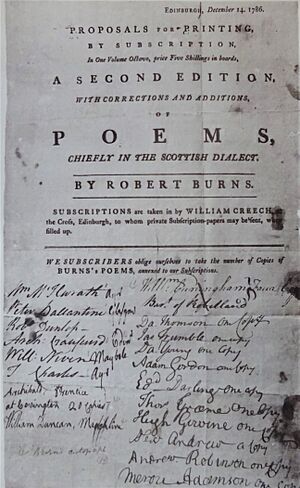 EDINBURGH, December 14. 1786.
PROPOSALS FOR PRINTING,
BY SUBSCRIPTION,
In One Volume Octavo, price Five Shillings in boards,
A SECOND EDITION,
WITH CORRECTIONS AND ADDITIONS,
OF
POEMS,
CHIEFLY IN THE SCOTTISH DIALECT.
BY ROBERT BURNS.
SUBSCRIPTIONS are taken in by WILLIAM CREECH,
the Cross, Edinburgh, to whom private Subscription-papers may be sent, when
filled up.
WE SUBSCRIBERS oblige ourselves to take the number of Copies of
BURNS's POEMS, annexed to our Subscriptions.
Wm McIlwrath Ayr
Peter Ballantine
Rob Dunlop
Arch. Craufuird
Will: Niven Maybole
T Charles Ayr
Archibald Prentice
at Covington 20 Copies
William Duncan, Mauchline
Cunningham
Da Thomson one Copy
Jas Trumble one copy
Da Young one Copy
Adam Gordon one Copy
Ed Darling one copy
Thos Greeme one Copy
Hugh Girvine one copy
Andrew a Copy
Andrew Robinson one copy
Adamson one Copy